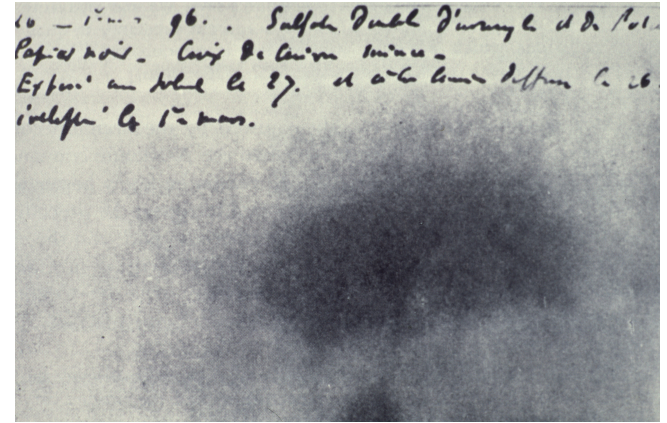 96. Sulfate Double D'uranyle et De
Papier noir. Croix De Cuivre mince.
Exposé au Soleil le 27. et à la lumière diffuse le 26
le 1er mars.